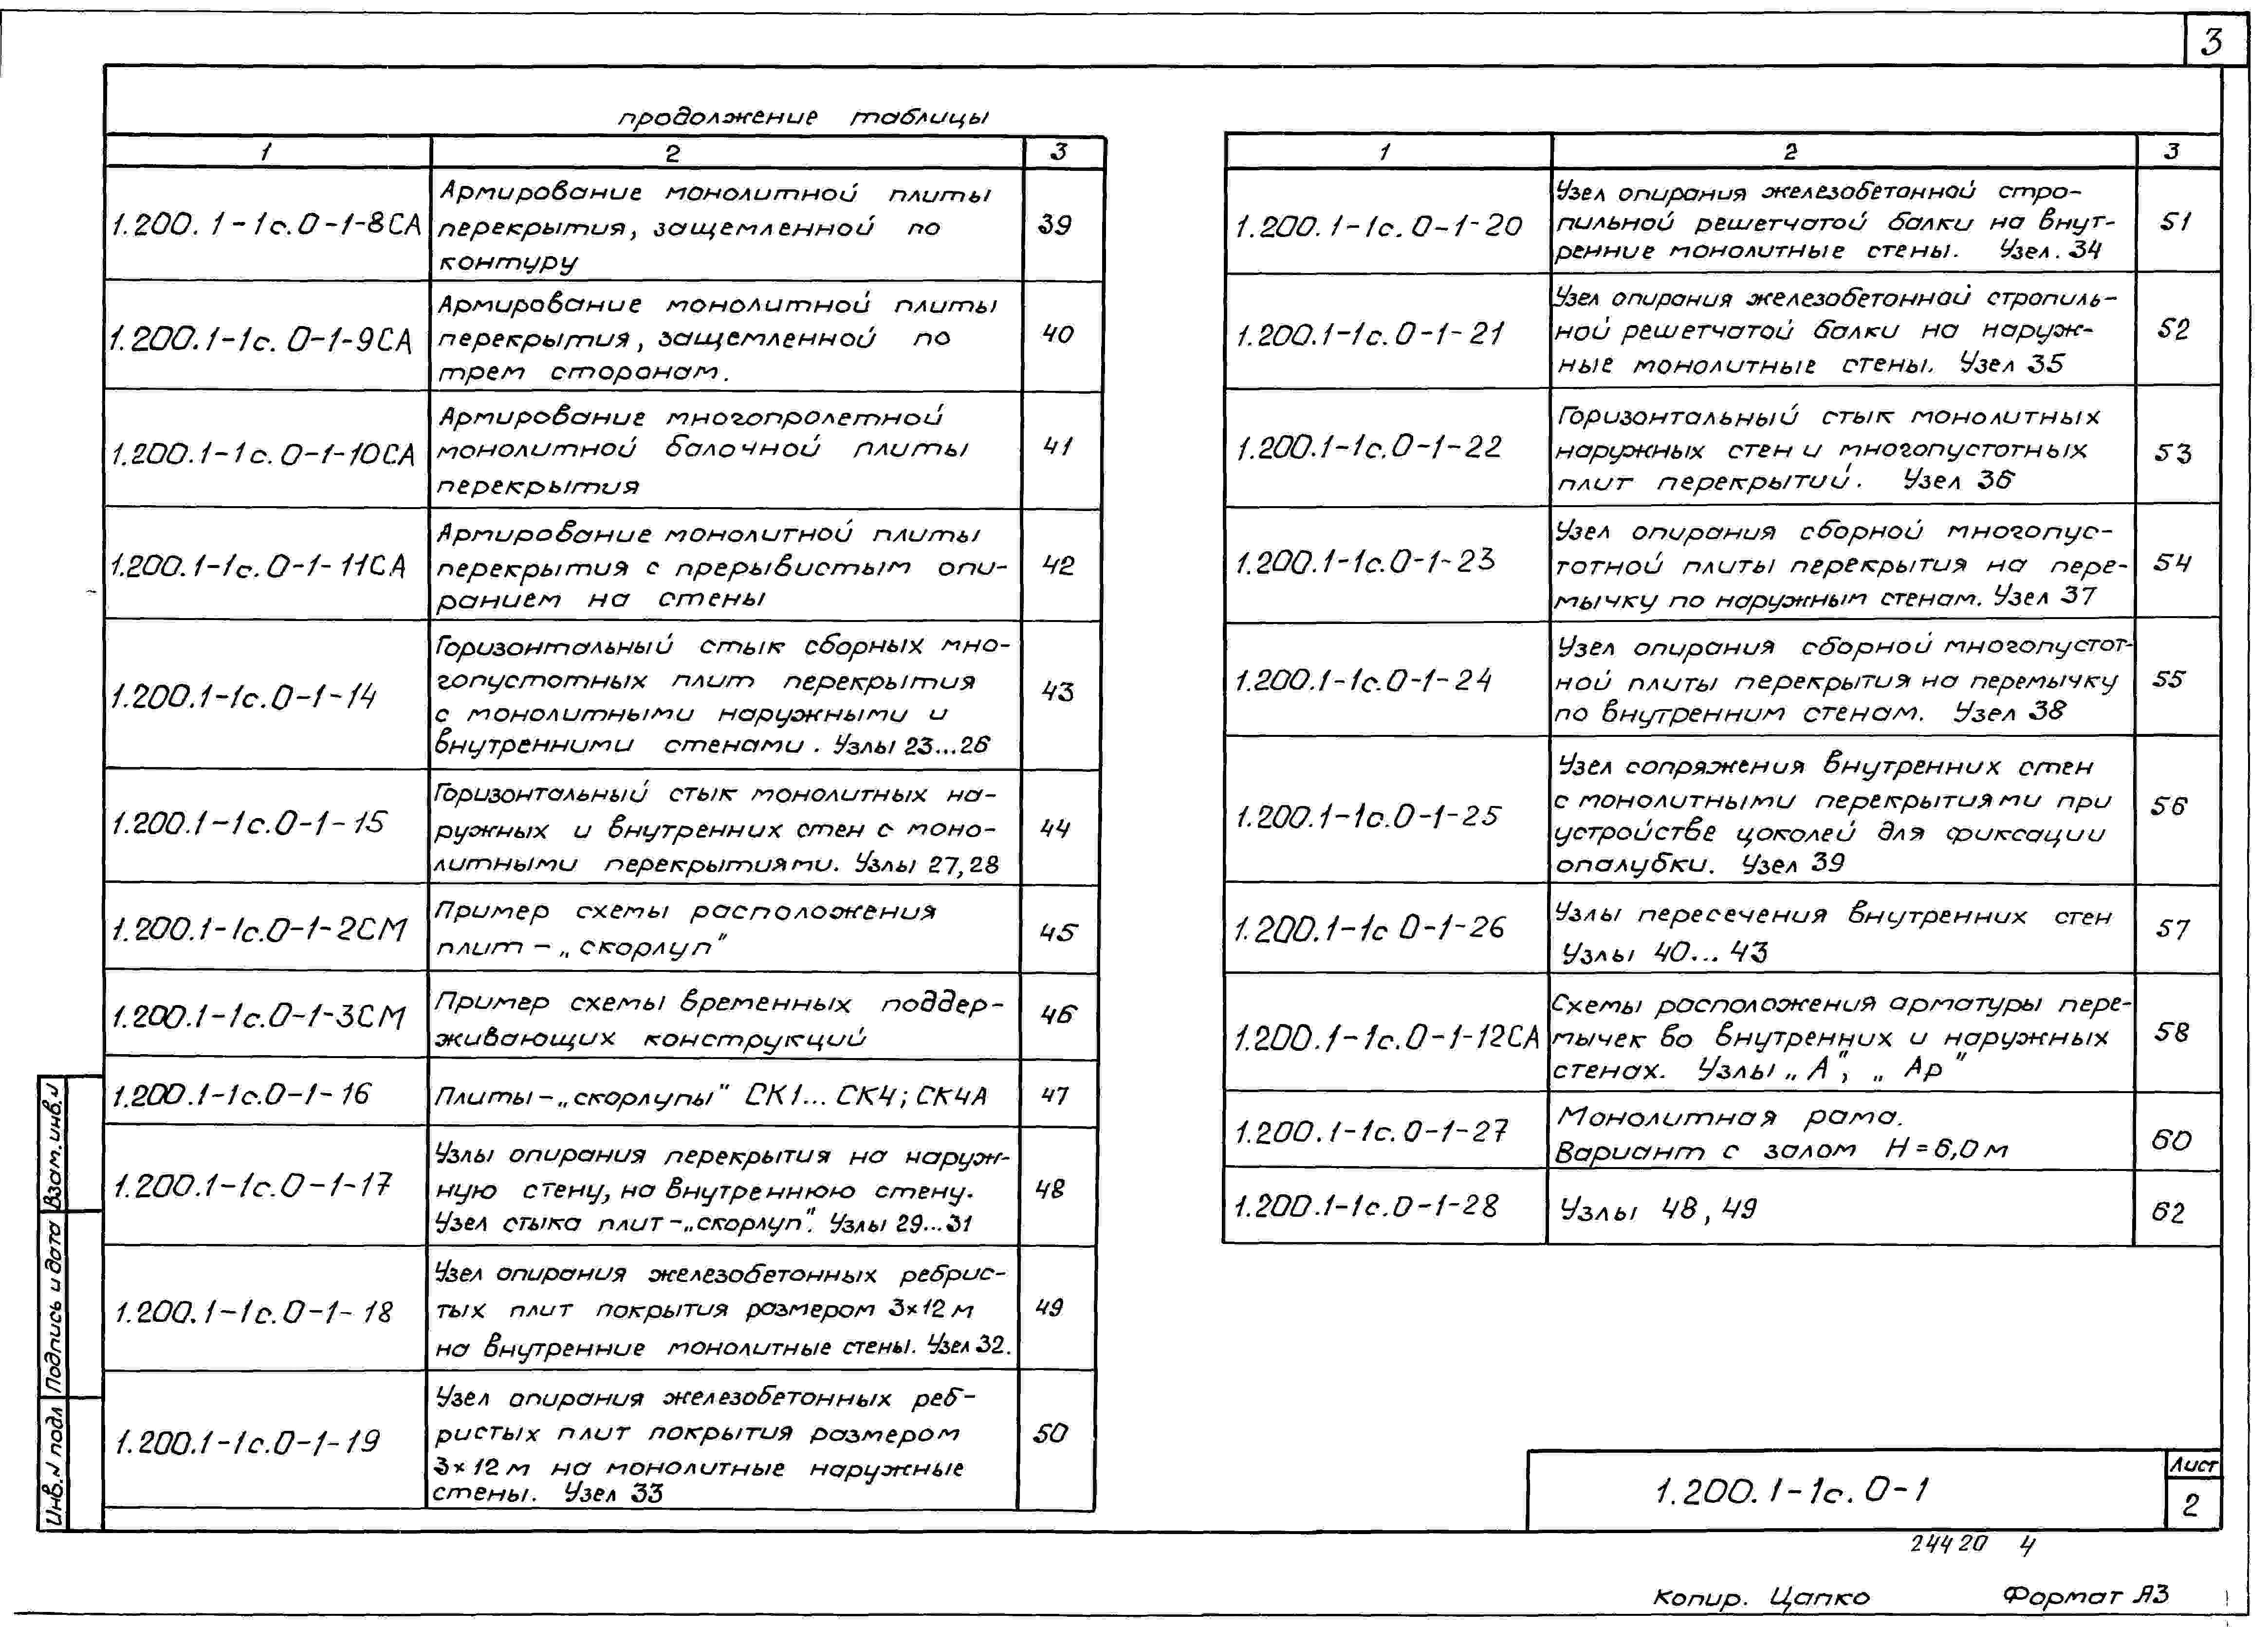 3
продолжение таблицы
1 2 3
1.200.1-1с.0-1-8СА
Армирование монолитной плиты
перекрытия, защемленной по
контуру
39
1.200.1-1с.0-1-9СА
Армирование монолитной плиты
перекрытия, защемленной по
трем сторонам.
40
1.200.1-1с.0-1-10СА
Армирование многопролетной
монолитной балочной плиты
перекрытия
41
1.200.1-1с.0-1-11СА
Армирование монолитной плиты
перекрытия с прерывистым опи-
ранием на стены
42
1.200.1-1с.0-1-14
Горизонтальный стык сборных мно-
гопустотных плит перекрытия
с монолитными наружными и
внутренними стенами. Узлы 23...26
43
1.200.1-1с.0-1-15
Горизонтальный стык монолитных на-
ружных и внутренних стен с моно-
литными перекрытиями. Узлы 27,28
44
1.200.1-1с.0-1-2СМ
Пример схемы расположения
плит-„скорлуп"
45
1.200.1-1с.0-1-3СМ
Пример схемы временных поддер-
живающих конструкций
46
1.200.1-1с.0-1-16
Плиты-„скорлупы" СК1... СК4; СК4А
47
1.200.1-1с.0-1-17
Узлы опирания перекрытия на наруж-
ную стену, на внутреннюю стену.
Узел стыка плит-„скорлуп". Узлы 29...31
48
1.200.1-1с.0-1-18
Узел опирания железобетонных ребрис-
тых плит покрытия размером 3×12 м
на внутренние монолитные стены. Узел 32.
49
1.200.1-1с.0-1-19
Узел опирания железобетонных реб-
ристых плит покрытия размером
3×12 м на монолитные наружные
стены. Узел 33
50
1 2 3
1.200.1-1с.0-1-20
Узел опирания железобетонной стро-
пильной решетчатой балки на внут-
ренние монолитные стены. Узел. 34
51
1.200.1-1с.0-1-21
Узел опирания железобетонной стропиль-
ной решетчатой балки на наруж-
ные монолитные стены. Узел 35
52
1.200.1-1с.0-1-22
Горизонтальный стык монолитных
наружных стен и многопустотных
плит перекрытий. Узел 36
53
1.200.1-1с.0-1-23
Узел опирания сборной многопус-
тотной плиты перекрытия на пере-
мычку по наружным стенам. Узел 37
54
1.200.1-1с.0-1-24
Узел опирания сборной многопустот-
ной плиты перекрытия на перемычку
по внутренним стенам. Узел 38
55
1.200.1-1с.0-1-25
Узел сопряжения внутренних стен
с монолитными перекрытиями при
устройстве цоколей для фиксации
опалубки. Узел 39
56
1.200.1-1с 0-1-26
Узлы пересечения внутренних стен
Узлы 40... 43
57
1.200.1-1с.0-1-12СА
Схемы расположения арматуры пере-
мычек во внутренних и наружных
стенах. Узлы „А", „Ар"
58
1.200.1-1с.0-1-27
Монолитная рама.
Вариант с залом Н=6,0м
60
1.200.1-1с.0-1-28
Узлы 48, 49
62
Инв.N подл Подпись и дата Взам.инв.N
1.200.1-1с.0-1
Лист
2
24420 4
Копир. Цапко Формат А3